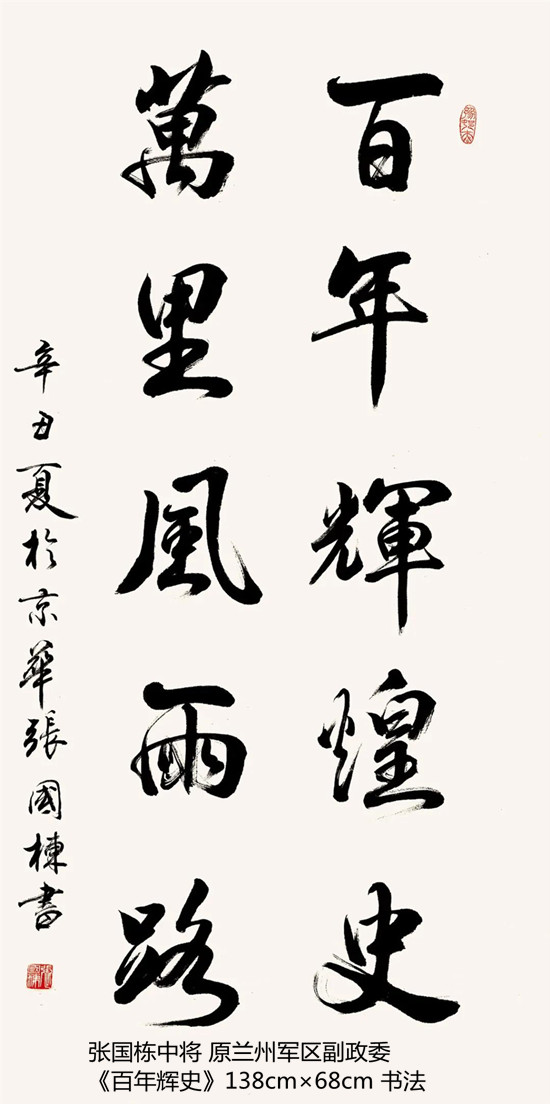 百年輝煌史
萬里風雨路
辛丑夏於京華張國棟書
张国栋中将 原兰州军区副政委
《百年辉史》138cm×68cm 书法